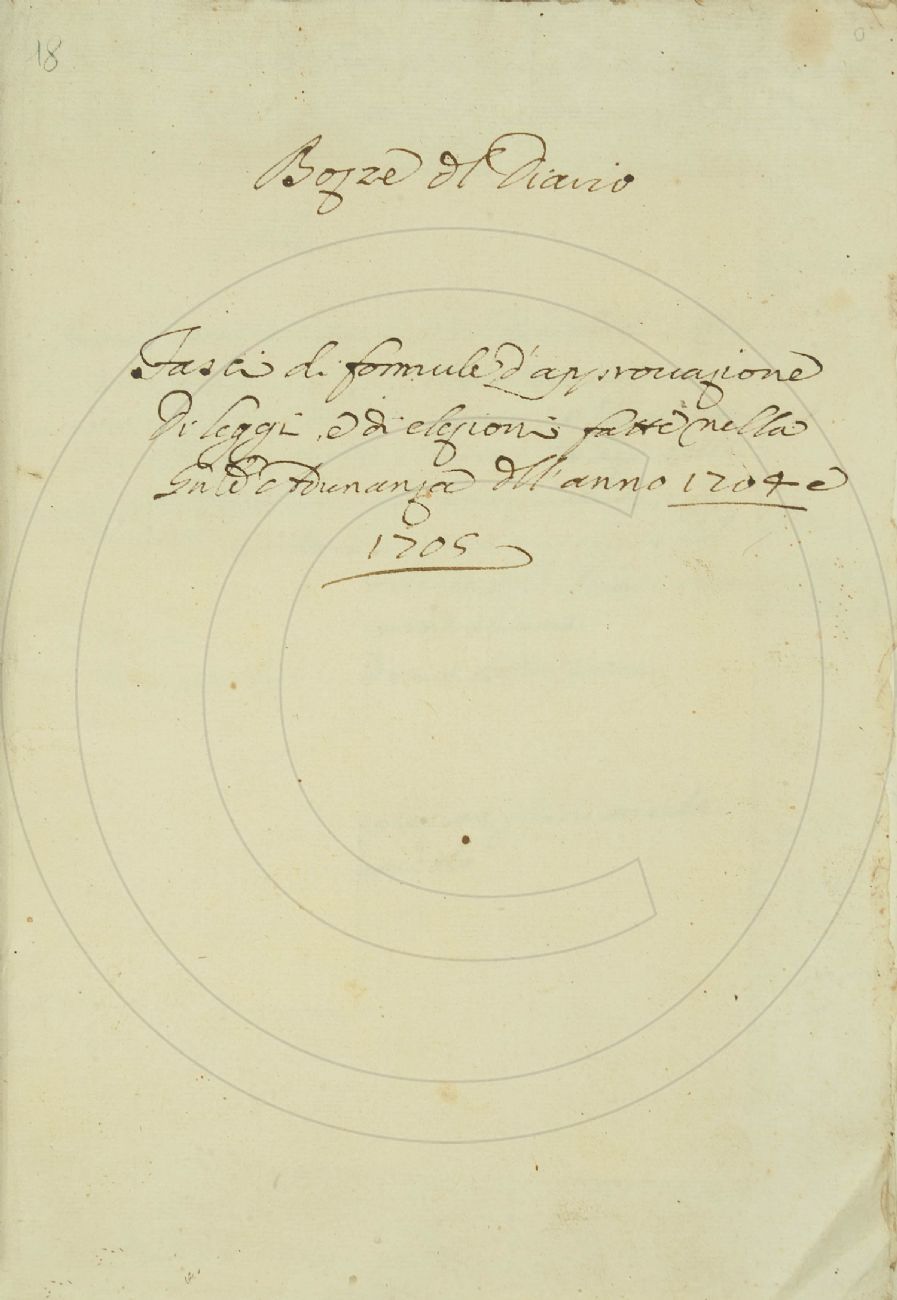 18
Bozze dl Diario
Fasci di formule d'approvazione
Di leggi, e di elezioni fatte nella
Adunanza dll'anno 1704 e
1705